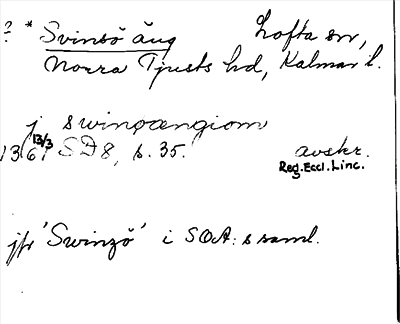 ? * Svinsö äng Lofta sn,
Norra Tjusts hd, Kalmar l.
j swinøængiom
13/3
1361 SD 8, s. 35. avskr.
Reg. Eccl. Linc.
jfr 'Swinzö' i SOA:s saml.